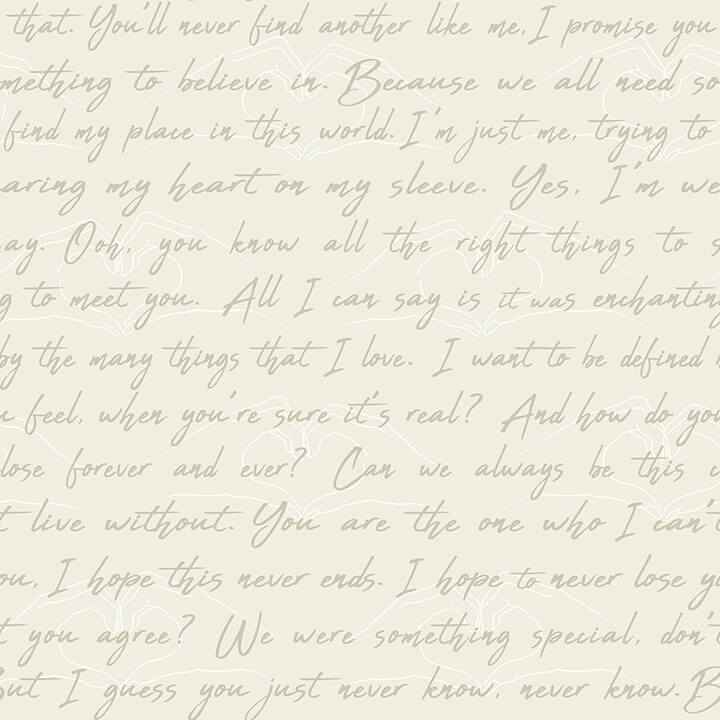 that. You'll never find another like me, I promise you
mething to believe in. Because we all need so
find my place in this world. I'm just me, trying to
aring my heart on my sleeve. Yes, I'm we
ay. Ooh, you know all the right things to s
g to meet you. All I can say is it was enchanting
by the many things that I love. I want to be defined
u feel, when you're sure it's real? And how do you
lose forever and ever? Can we always be this c
t live without. You are the one who I can't
ou, I hope this never ends. I hope to never lose yo
t you agree? We were something special, don't
But I guess you just never know, never know. B